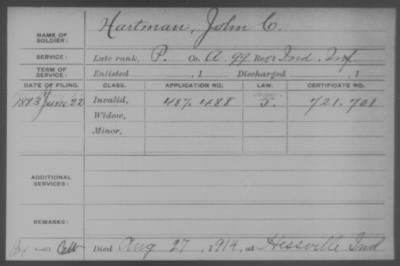 NAME OF SOLDIER: Hartman, John C.
SERVICE: Late rank, P. Co. A, 99 Reg't Ind. Inf.
TERM OF SERVICE: Enlisted , 1 Discharged , 1
DATE OF FILING. CLASS. APPLICATION NO. LAW. CERTIFICATE NO.
1883 June 22 Invalid, 487.488 721.701
Widow,
Minor,
ADDITIONAL SERVICES:
REMARKS:
Died Aug 27, 1914, at Hessville Ind